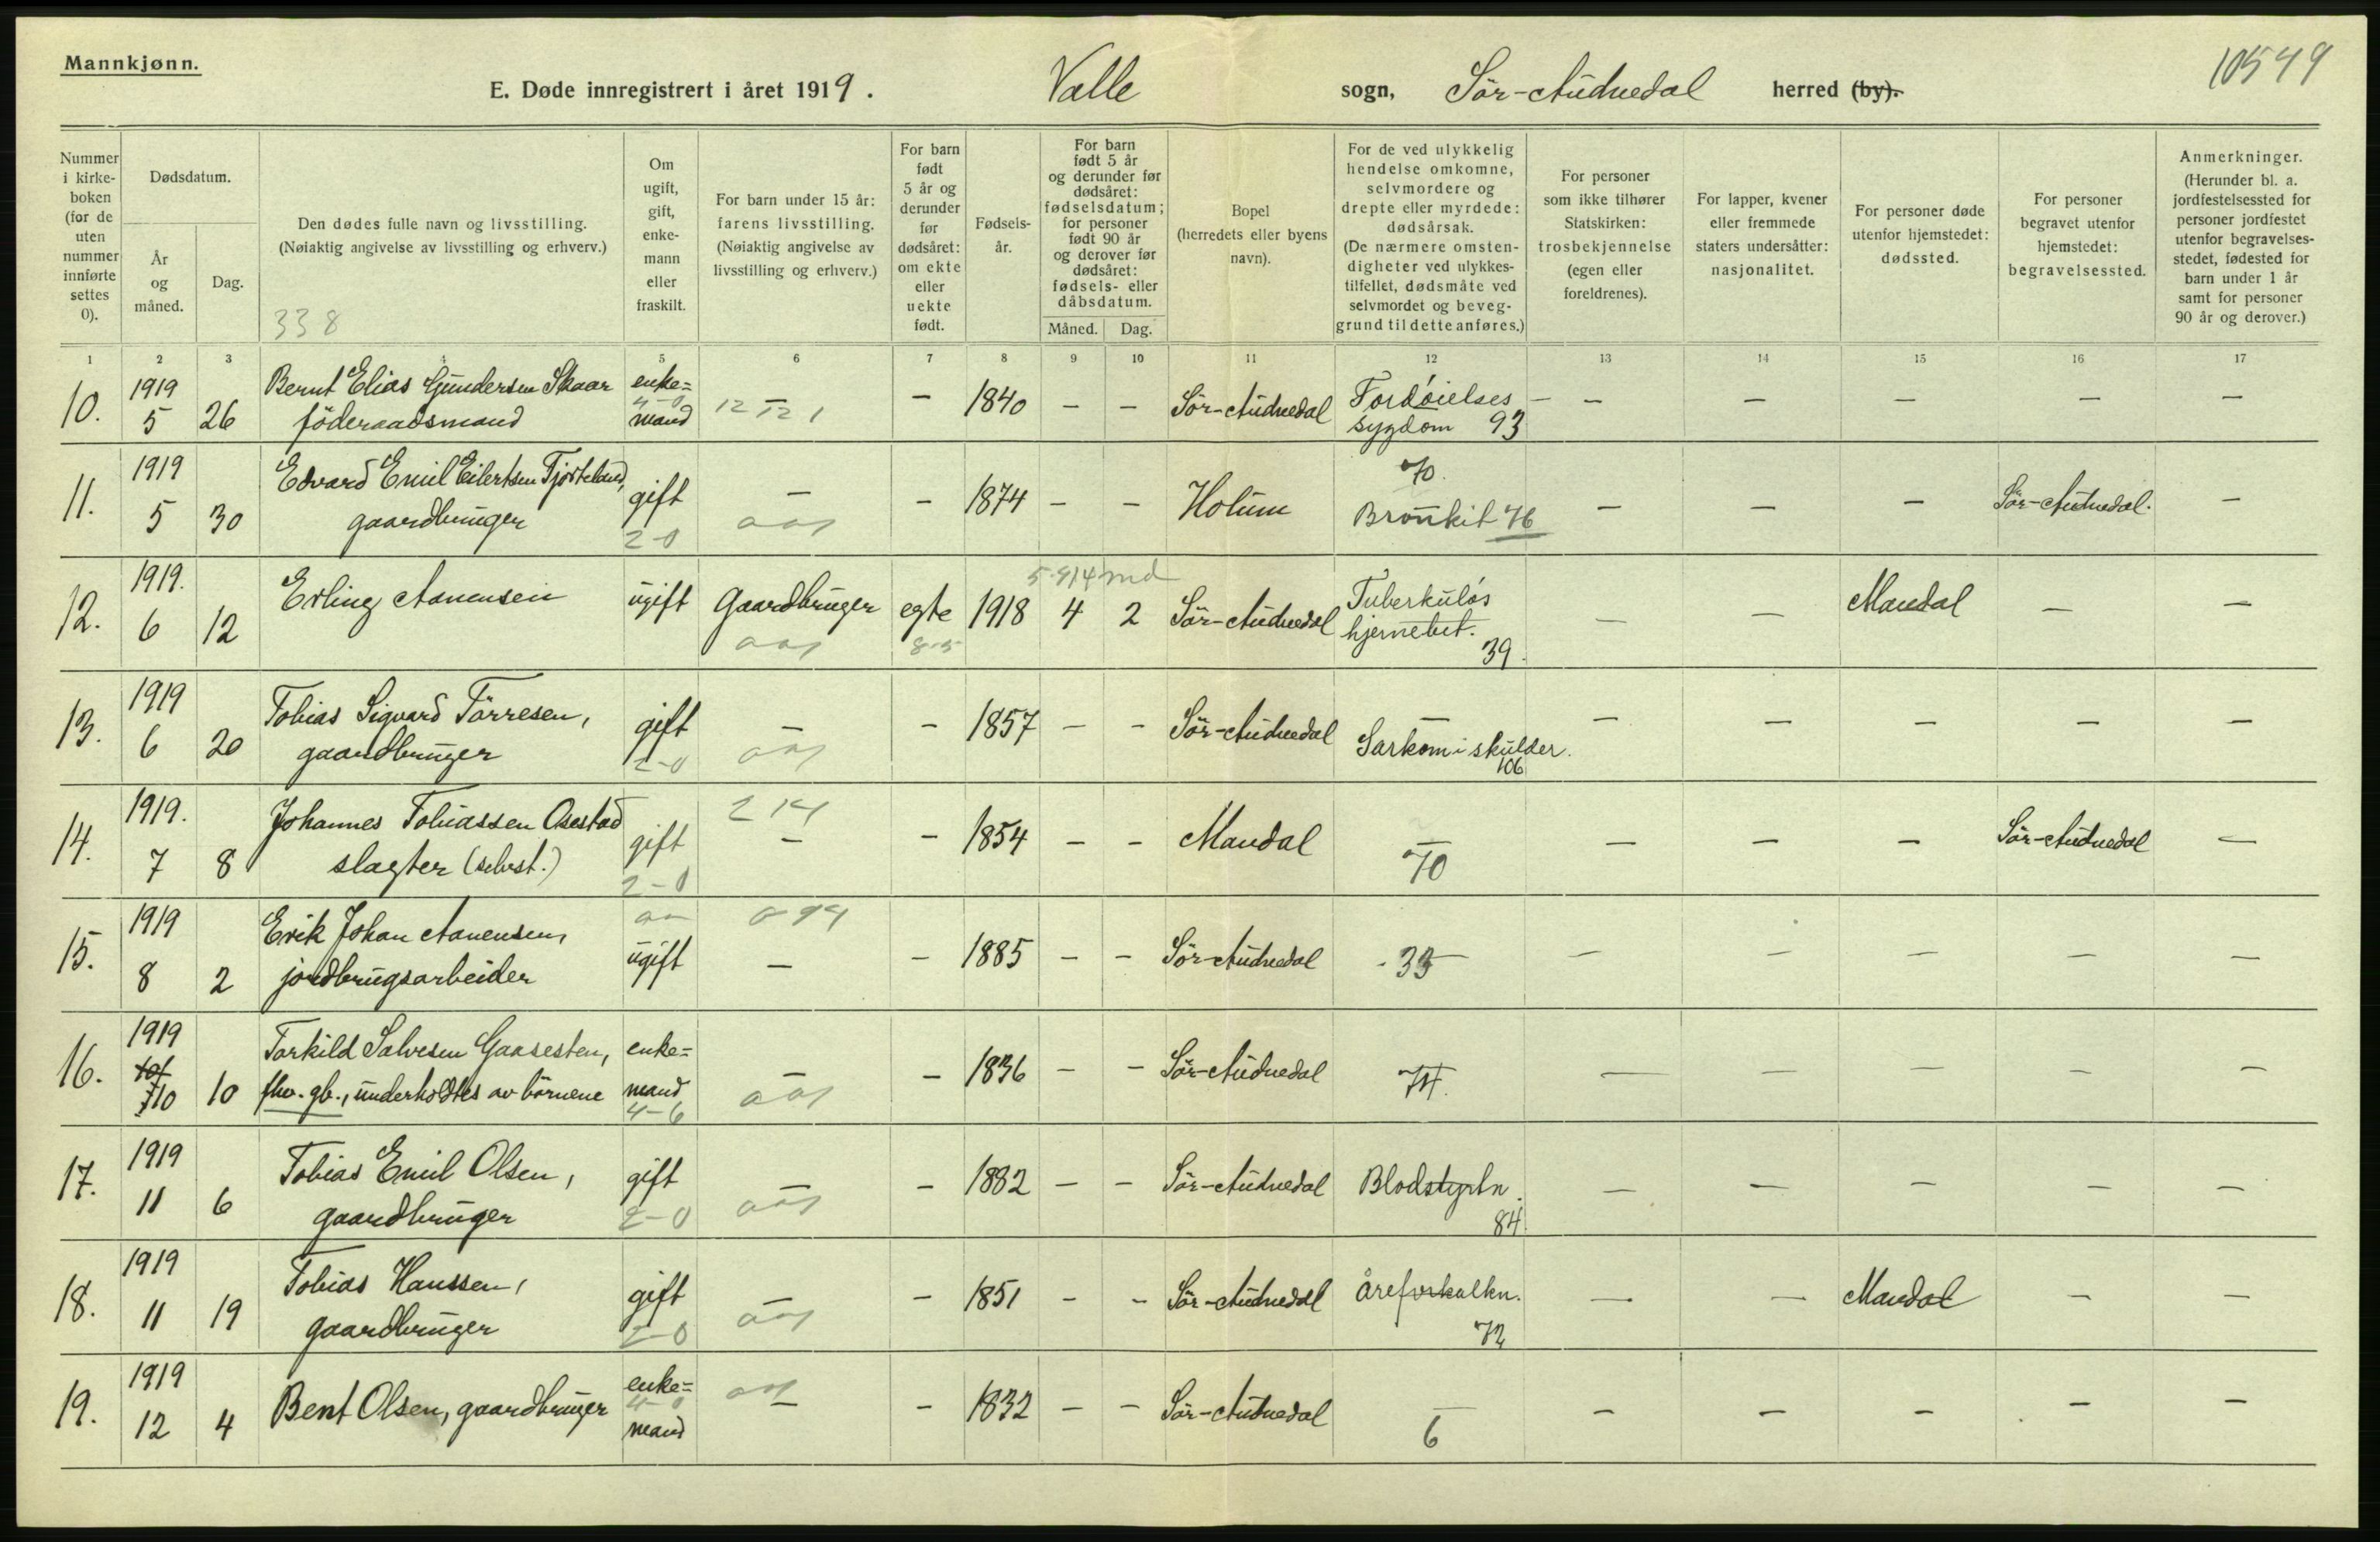 Mannkjønn.
E. Døde innregistrert i året 1919. Valle sogn, Sör-Audnedal herred (by).
10549
Nummer i kirkeboken (for de uten nummer innførte settes 0).
Dødsdatum.
År og måned.
Dag.
Den dødes fulle navn og livsstilling.
(Nøiaktig angivelse av livsstilling og erhverv.)
338
Om ugift, gift, enkemann eller fraskilt.
For barn under 15 år: farens livsstilling. (Nøiaktig angivelse av livsstilling og erhverv.)
For barn født 5 år og derunder før dødsåret: om ekte eller uekte født.
Fødselsår.
For barn født 5 år og derunder før dødsåret: fødselsdatum; for personer født 90 år og derover før dødsåret: fødsels- eller dåbsdatum.
Måned. Dag.
Bopel (herredets eller byens navn).
For de ved ulykkelig hendelse omkomne, selvmordere og drepte eller myrdede: dødsårsak. (De nærmere omstendigheter ved ulykkestilfellet, dødsmåte ved selvmordet og beveggrund til dette anføres.)
For personer som ikke tilhører Statskirken: trosbekjennelse (egen eller foreldrenes).
For lapper, kvener eller fremmede staters undersåtter: nasjonalitet.
For personer døde utenfor hjemstedet: dødssted.
For personer begravet utenfor hjemstedet: begravelsessted.
Anmerkninger. (Herunder bl. a. jordfestelsessted for personer jordfestet utenfor begravelsesstedet, fødested for barn under 1 år samt for personer 90 år og derover.)
1 2 3 4 5 6 7 8 9 10 11 12 13 14 15 16 17
10. 1919 5 26 Bernt Elias Gundersen Skaar föderaadsmand enke=mand 4-0 12 12 1 - - 1840 - - Sör-Audnedal Fordøielses sygdom 93 - - - - - -
11. 1919 5 30 Edvard Emil Eilertsen Tjorteland, gaardbruger gift 2-0 - - 1874 - - Holum 70. Bronkit 76 - - - Sör-Audnedal. -
12. 1919. 6 12 Erling Aanensen ugift Gaardbruger egte 8-5 1918 5-914 md 4 2 Sör-Audnedal Tuberkuløs hjernebet. 39. - - Mandal - -
13. 1919 6 20 Tobias Sigvard Törresen, gaardbruger gift 2-0 - - 1857 - - Sör-Audnedal - Sarkom i skulder. 106 - - - - -
14. 1919. 7 8 Johannes Tobiassen Osestad slagter (selvst.) gift 2-0 - - 1854 - - Mandal - 70 - - - Sör-Audnedal -
15. 1919 8 2 Erik Johan Aanensen, jordbrugsarbeider ugift - - 1885 - - Sör-Audnedal - - - - - -
16. 1919 10 10 Torkild Salvesen Gaasesten, fhv. gb., underholdtes av börnene enke=mand 4-6 - - 1836 - - Sör-Audnedal 74. - - - - -
17. 1919 11 6 Tobias Emil Olsen, gaardbruger gift 2-0 - - 1882 - - Sör-Audnedal Blodstyrtn. 84. - - - - -
18. 1919 11 19 Tobias Hanssen, gaardbruger gift 2-0 - - 1851 - - Sör-Audnedal Åreforkalkn. 72 - - Mandal - -
19. 1919 12 4 Bent Olsen, gaardbruger enke=mand 4-0 - - 1832 - - Sör-Audnedal - 6 - - - - -